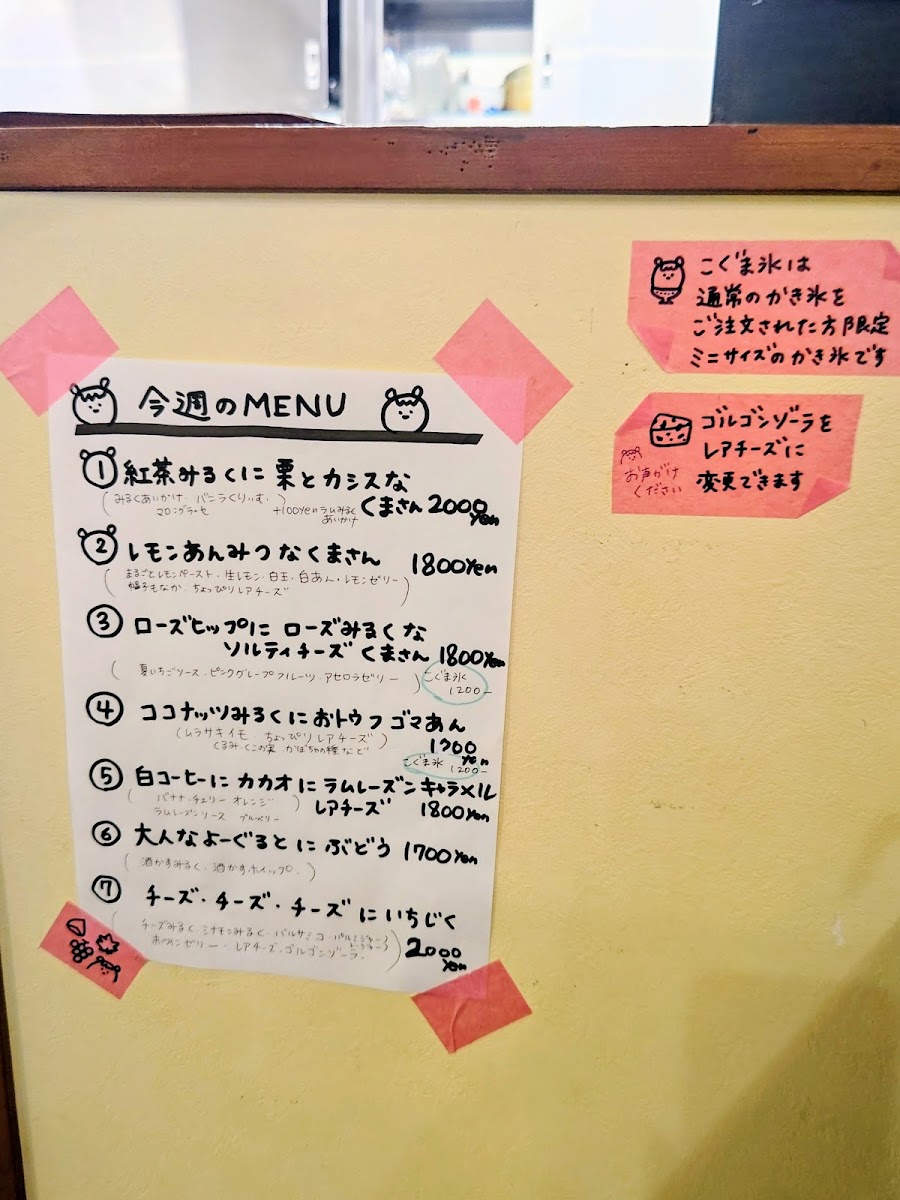 今週のMENU
① 紅茶みるくに 栗とカシスな
くまさん 2000yen
(みるくあいがけ・バニラくりぃむ、
マロングラッセ)
+100yenラムみるく
あいがけ
② レモンあんみつなくまさん 1800yen
(まるごとレモンペースト・生レモン・白玉・白あん・レモンゼリー
帽子もなか・ちょっぴりレアチーズ)
③ ローズヒップに ローズみるくな
ソルティチーズ くまさん 1800yen
(夏いちごソース・ピンクグレープフルーツ・アセロラゼリー)
こぐま氷
1200-
④ ココナッツみるくにおトウフゴマあん
(ムラサキイモ・ちょっぴりレアチーズ
くるみ・くこの実・かぼちゃの種など)
1700yen
こぐま氷 1200-
⑤ 白コーヒーに カカオに ラムレーズンキャラメル
レアチーズ 1800yen
(バナナ・チェリー オレンジ
ラムレーズンソース ブルーベリー)
⑥ 大人なよーぐるとに ぶどう 1700yen
(酒かすみるく・酒かすホイップ・)
⑦ チーズ・チーズ・チーズ にいちじく
2000yen
(チーズみるく・シナモンみるく・バルサミコ・パルミジャーノ
レジャーノ
ホワインゼリー・レアチーズ・ゴルゴンゾーラ・)
こぐま氷は
通常のかき氷を
ご注文された方限定
ミニサイズのかき氷です
ゴルゴンゾーラを
レアチーズに
変更できます
お声がけ
ください